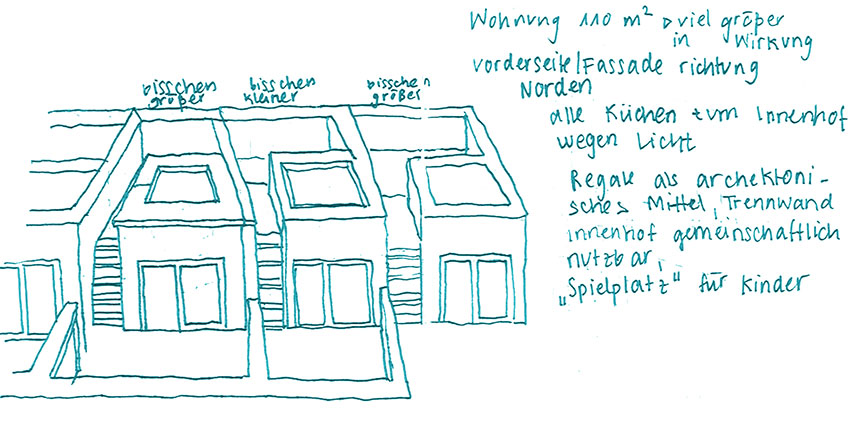 bisschen
größer
bisschen
kleiner
bisschen
größer
Wohnung 110 m² ▹ viel größer
in Wirkung
Vorderseite/Fassade richtung
Norden
alle Küchen zum Innenhof
wegen Licht
Regale als archektoni-
sches Mittel, Trennwand
innenhof gemeinschaftlich
nutzbar,
„Spielplatz" für Kinder